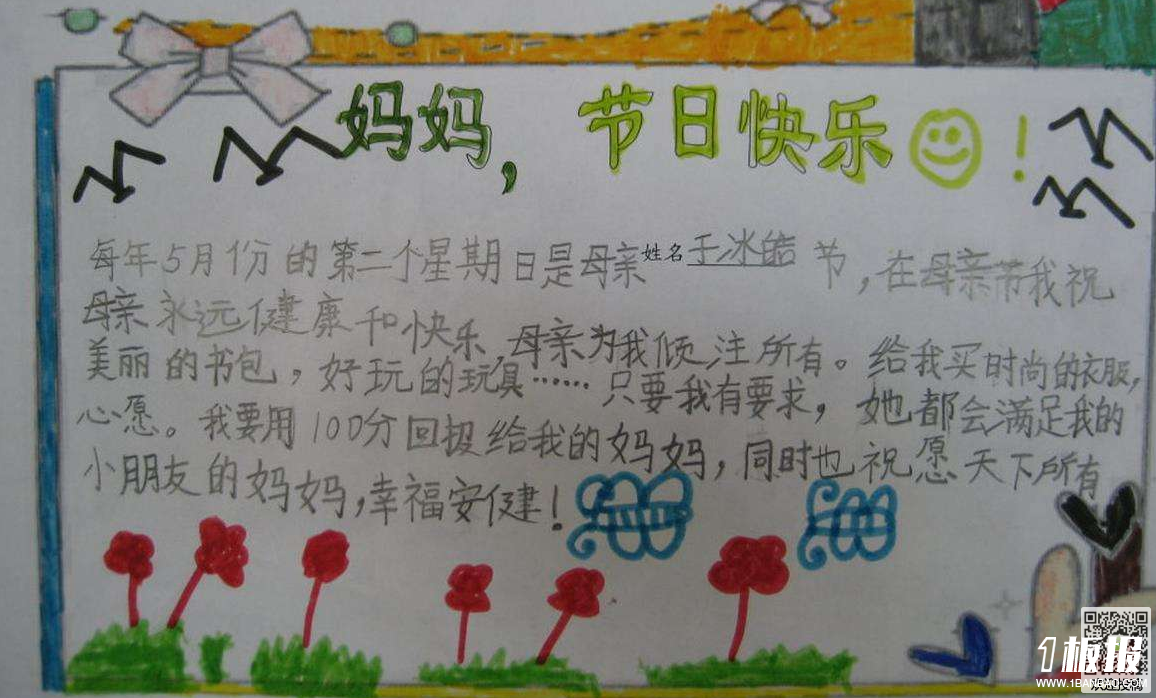 妈妈，节日快乐！
每年5月份的第二个星期日是母亲姓名于冰皓节，在母亲节我祝
母亲永远健康和快乐，母亲为我倾注所有。给我买时尚的衣服，
美丽的书包，好玩的玩具……只要我有要求，她都会满足我的
心愿。我要用100分回报给我的妈妈，同时也祝愿天下所有
小朋友的妈妈，幸福安健！
1板报
WWW.1BANBAO.COM